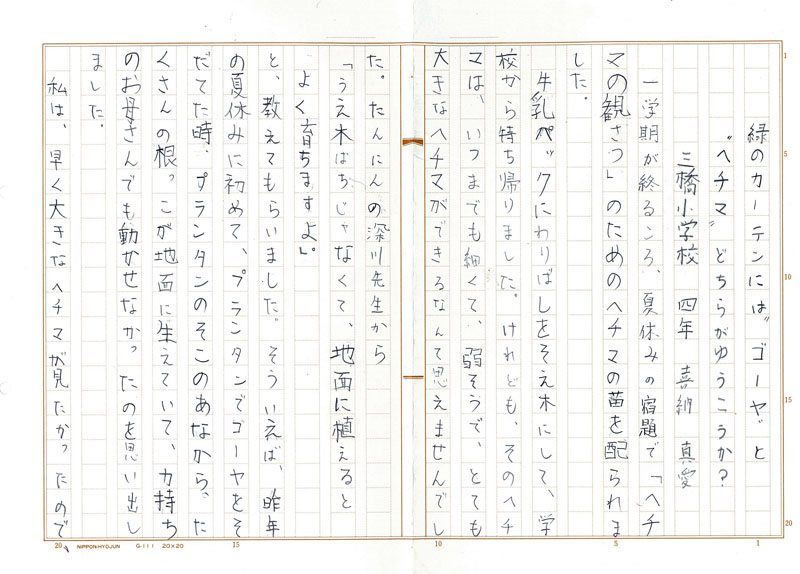 緑のカーテンには"ゴーヤ"と
"ヘチマ"どちらがゆうこうか?
三橋小学校 四年 喜納 真愛
一学期が終るころ、夏休みの宿題で「ヘチ
マの観さつ」のためのヘチマの苗を配られま
した。
牛乳パックにわりばしをそえ木にして、学
校から持ち帰りました。けれども、そのヘチ
マは、いつまでも細くて、弱そうで、とても
大きなヘチマができるなんて思えませんでし
た。たんにんの深川先生から
「うえ木ばちじゃなくて、地面に植えると
よく育ちますよ」。
と、教えてもらいました。そういえば、昨年
の夏休みに初めて、プランタンでゴーヤをそ
だてた時、プランタンのそこのあなから、た
くさんの根っこが地面に生えていて、力持ち
のお母さんでも動かせなかったのを思い出し
ました。
私は、早く大きなヘチマが見たかったので、
1
5
10
15
20
1
5
10
15
20
NIPPON HYOJUN G-111 20×20